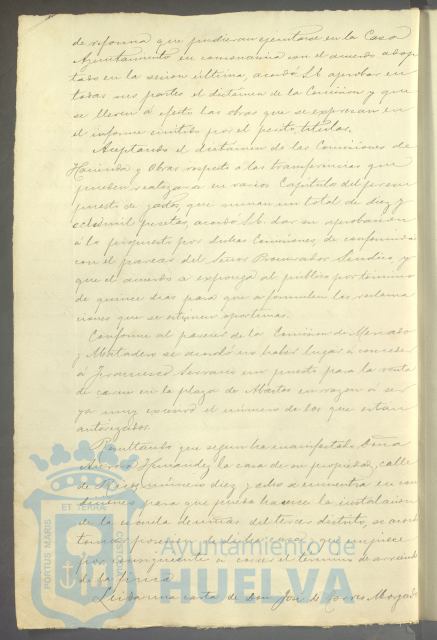 de reforma que pudieran ejecutarse en la Casa
Ayuntamiento en consonancia con el acuerdo adop
tado en la sesion última, acordó S.E. aprobar en
todas sus partes el dictamen de la Comision y que
se lleven a efecto las obras que se expresan en
el informe emitido por el perito titular.
Aceptando el dictamen de las Comisiones de
Hacienda y Obras respecto á las transferencias que
pueden realizarse en varios Capítulos del presu
puesto de gastos, que suman un total de diez y
mil pesetas, acordó S.E. dar su aprobacion
á lo propuesto por dichas Comisiones, de conformidad
con el parecer del Señor Procurador Síndico, y
que el acuerdo se exponga al público por término
de quince dias para que se formulen las reclama
ciones que se estimen oportunas.
Conforme al parecer de la Comision de Mercado
y Matadero se acordó no haber lugar á conceder
á Francisco Serrano un puesto para la venta
de carne en la plaza de Abastos en razon á ser
ya muy excesivo el número de los que estan
autorizados.
Resultando que segun ha manifestado Doña
Hernandez la casa de su propiedad, calle
de número diez y ocho se encuentra en con
diciones para que pueda hacerse la instalacion
de la escuela de niñas del tercer distrito, se acordó
tomar posesion de dicha casa y que empiece
por consiguiente á correr el término de arriendo
de la finca.
Leida una carta de don José de
PORTUS MARIS
ET TERRAE
CUSTODIA
Ayuntamiento de
HUELVA